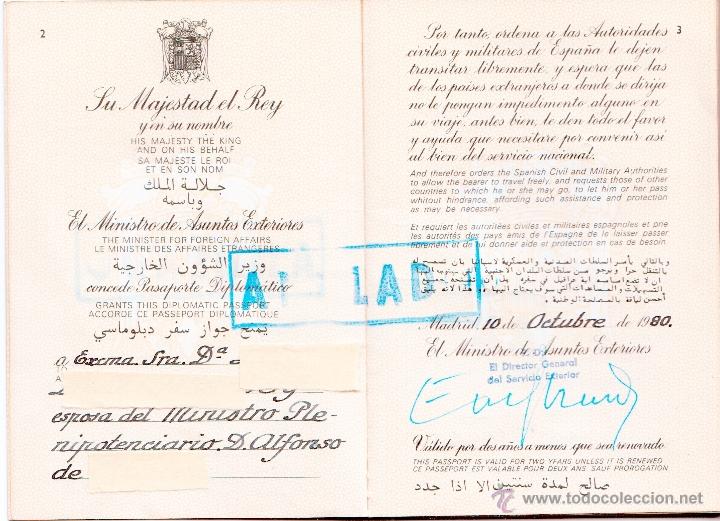 2
Su Majestad el Rey
y en su nombre
HIS MAJESTY THE KING
AND ON HIS BEHALF
SA MAJESTE LE ROI
ET EN SON NOM
جلالة الملك
وباسمه
El Ministro de Asuntos Exteriores
THE MINISTER FOR FOREIGN AFFAIRS
LE MINISTRE DES AFFAIRES ETRANGERES
وزير الشؤون الخارجية
concede Pasaporte Diplomático
GRANTS THIS DIPLOMATIC PASSPORT
ACCORDE CE PASSEPORT DIPLOMATIQUE
يمنح جواز سفر دبلوماسي
a Excma. Sra. Dª
esposa del Ministro Ple-
nipotenciario D. Alfonso
de
LAD
3
Por tanto, ordena a las Autoridades
civiles y militares de España le dejen
transitar libremente, y espera que las
de los países extranjeros a donde se dirija
no le pongan impedimento alguno en
su viaje, antes bien, le den todo el favor
y ayuda que necesitare por convenir así
al bien del servicio nacional.
And therefore orders the Spanish Civil and Military Authorities
to allow the bearer to travel freely, and requests those of other
countries to which he or she may go, to let him or her pass
whitout hindrance, affording such assistance and protection
as may be necessary.
Et requiert les autorités civiles et militaires espagnoles et prie
les autorités des pays amis de l'Espagne de le laisser passer
librement et de lui donner aide et protection en cas de besoin.
Madrid, 10 de Octubre de 1980.
El Ministro de Asuntos Exteriores
El Director General
del Servicio Exterior
Válido por dos años a menos que sea renovado
THIS PASSPORT IS VALID FOR TWO YEARS UNLESS IT IS RENEWED
CE PASSEPORT EST VALABLE POUR DEUX ANS SAUF PROROGATION
صالح لمدة سنتين الا اذا جدد
www.todocoleccion.net